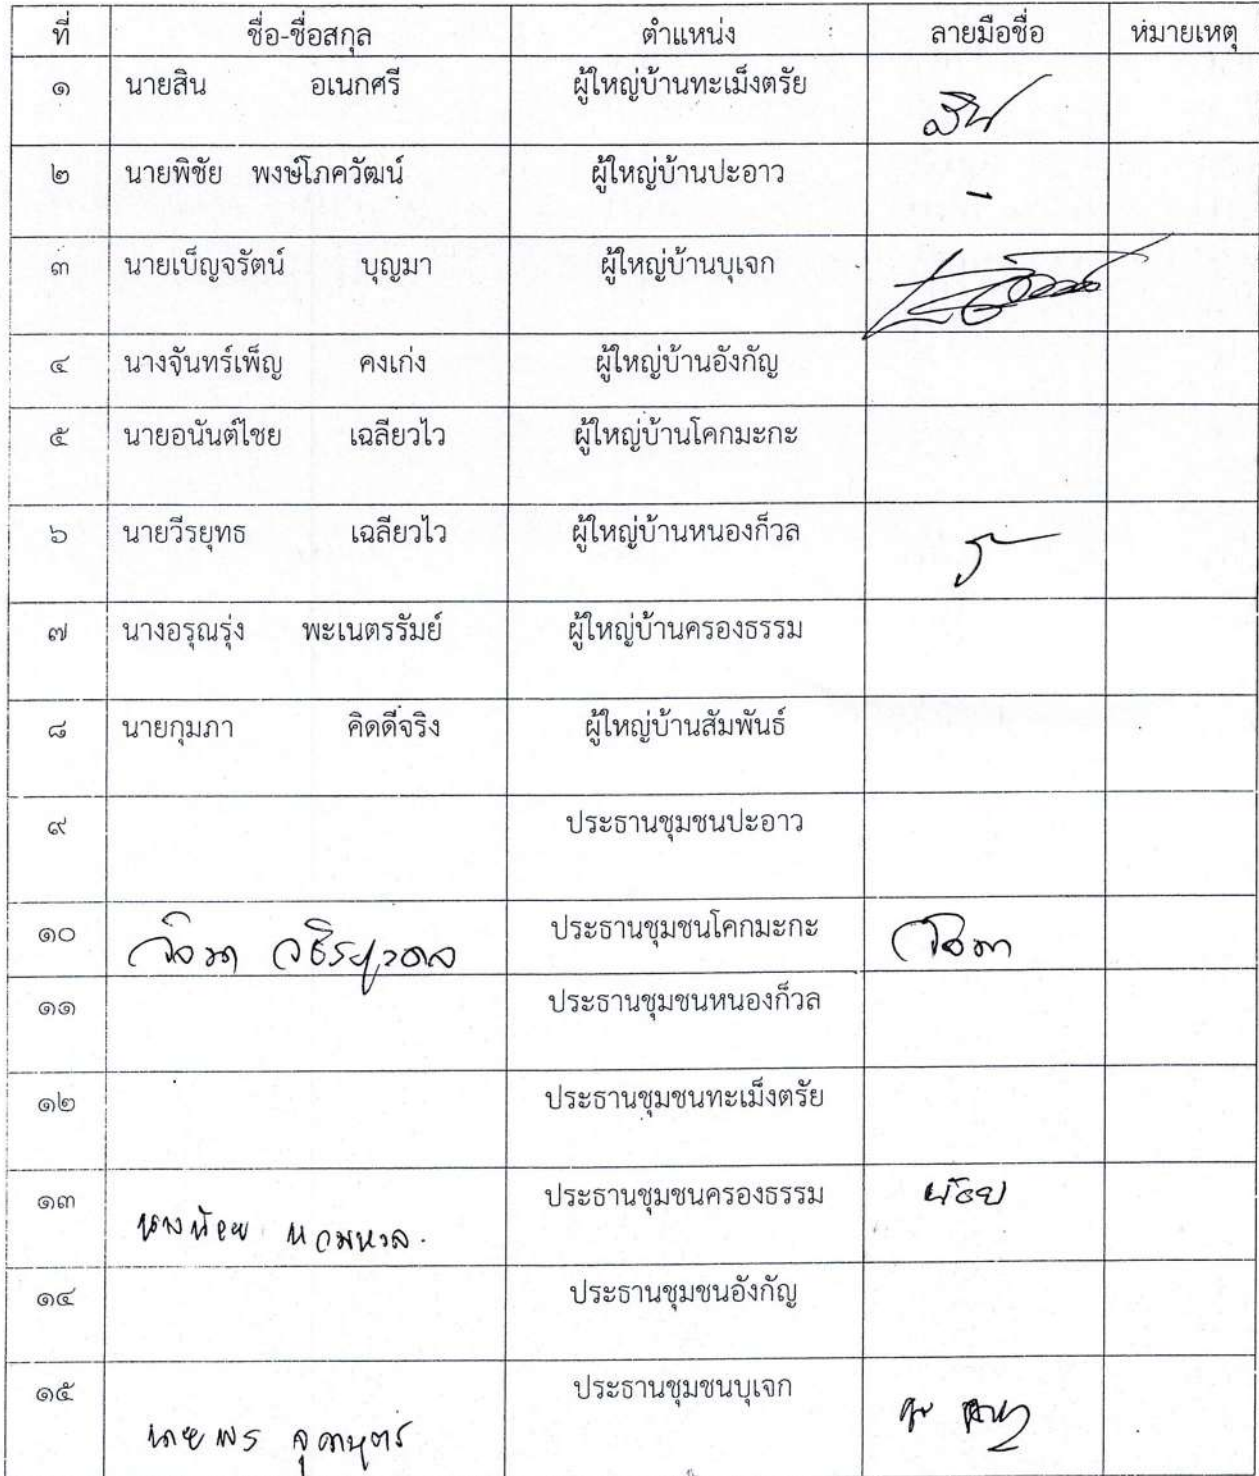 ที่ ชื่อ-ชื่อสกุล ตำแหน่ง ลายมือชื่อ หมายเหตุ
๑ นายสิน อเนกศรี ผู้ใหญ่บ้านทะเม็งตรัย สิน
๒ นายพิชัย พงษ์โภควัฒน์ ผู้ใหญ่บ้านปะอาว -
๓ นายเบ็ญจรัตน์ บุญมา ผู้ใหญ่บ้านบุเจก
๔ นางจันทร์เพ็ญ คงเก่ง ผู้ใหญ่บ้านอังกัญ
๕ นายอนันต์ไชย เฉลียวไว ผู้ใหญ่บ้านโคกมะกะ
๖ นายวีรยุทธ เฉลียวไว ผู้ใหญ่บ้านหนองก็วล
๗ นางอรุณรุ่ง พะเนตรรัมย์ ผู้ใหญ่บ้านครองธรรม
๘ นายกุมภา คิดดีจริง ผู้ใหญ่บ้านสัมพันธ์
๙ ประธานชุมชนปะอาว
๑๐ ประธานชุมชนโคกมะกะ
๑๑ ประธานชุมชนหนองก็วล
๑๒ ประธานชุมชนทะเม็งตรัย
๑๓ นางน้อย ประธานชุมชนครองธรรม น้อย
๑๔ ประธานชุมชนอังกัญ
๑๕ นายพร ประธานชุมชนบุเจก